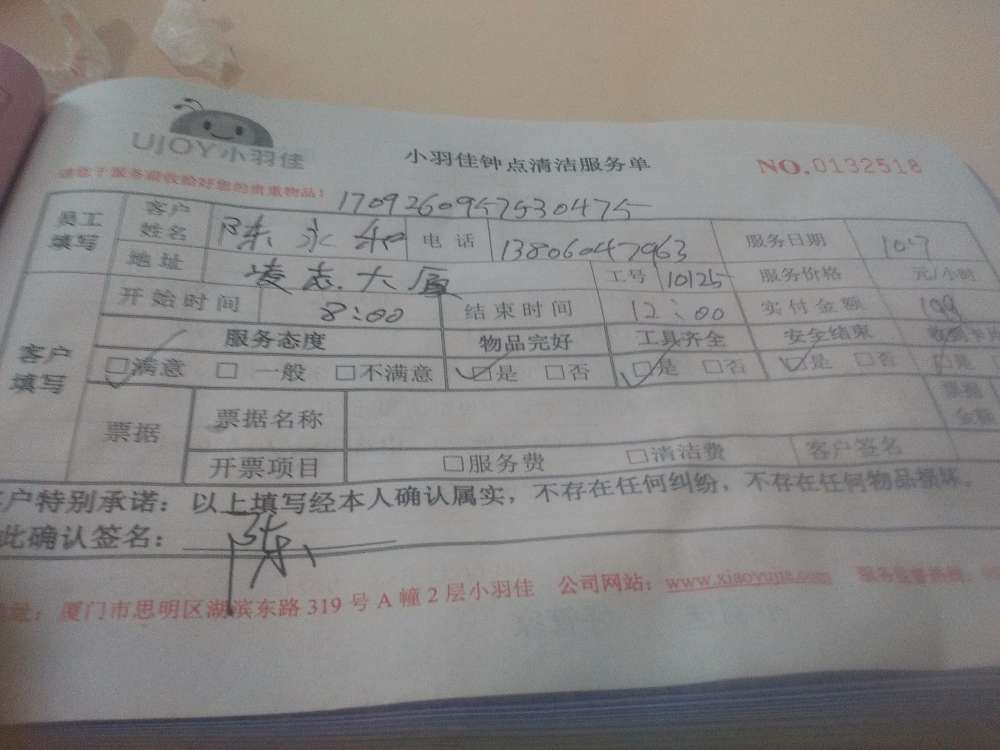 UJOY小羽佳
小羽佳钟点清洁服务单
NO.0132518
请您于服务前收拾好您的贵重物品!
1709260957530475
员工填写 客户姓名 陈永和 电话 13806047963 服务日期 10.7
地址 凌志大厦 工号 10125 服务价格 元/小时
开始时间 8:00 结束时间 12:00 实付金额
客户填写 服务态度 物品完好 工具齐全 安全结束
□满意 □一般 □不满意 □是 □否 □是 □否 □是 □否 □是
票据 票据名称 票据金额
开票项目 □服务费 □清洁费 客户签名
客户特别承诺:以上填写经本人确认属实,不存在任何纠纷,不存在任何物品损坏。
此确认签名: 陈
地址:厦门市思明区湖滨东路319号A幢2层小羽佳 公司网站:www.xiaoyujia.com 服务监督热线: